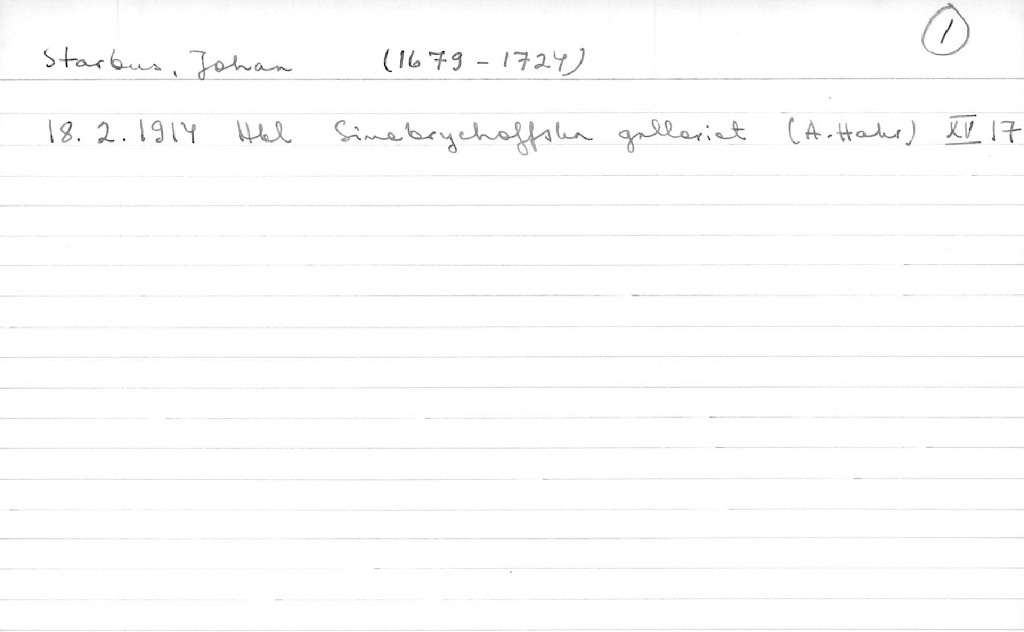 1
Starbus, Johan (1679 - 1724)
18. 2. 1914 Hbl Sinebrychoffska galleriet (A. Hahr) XV 17